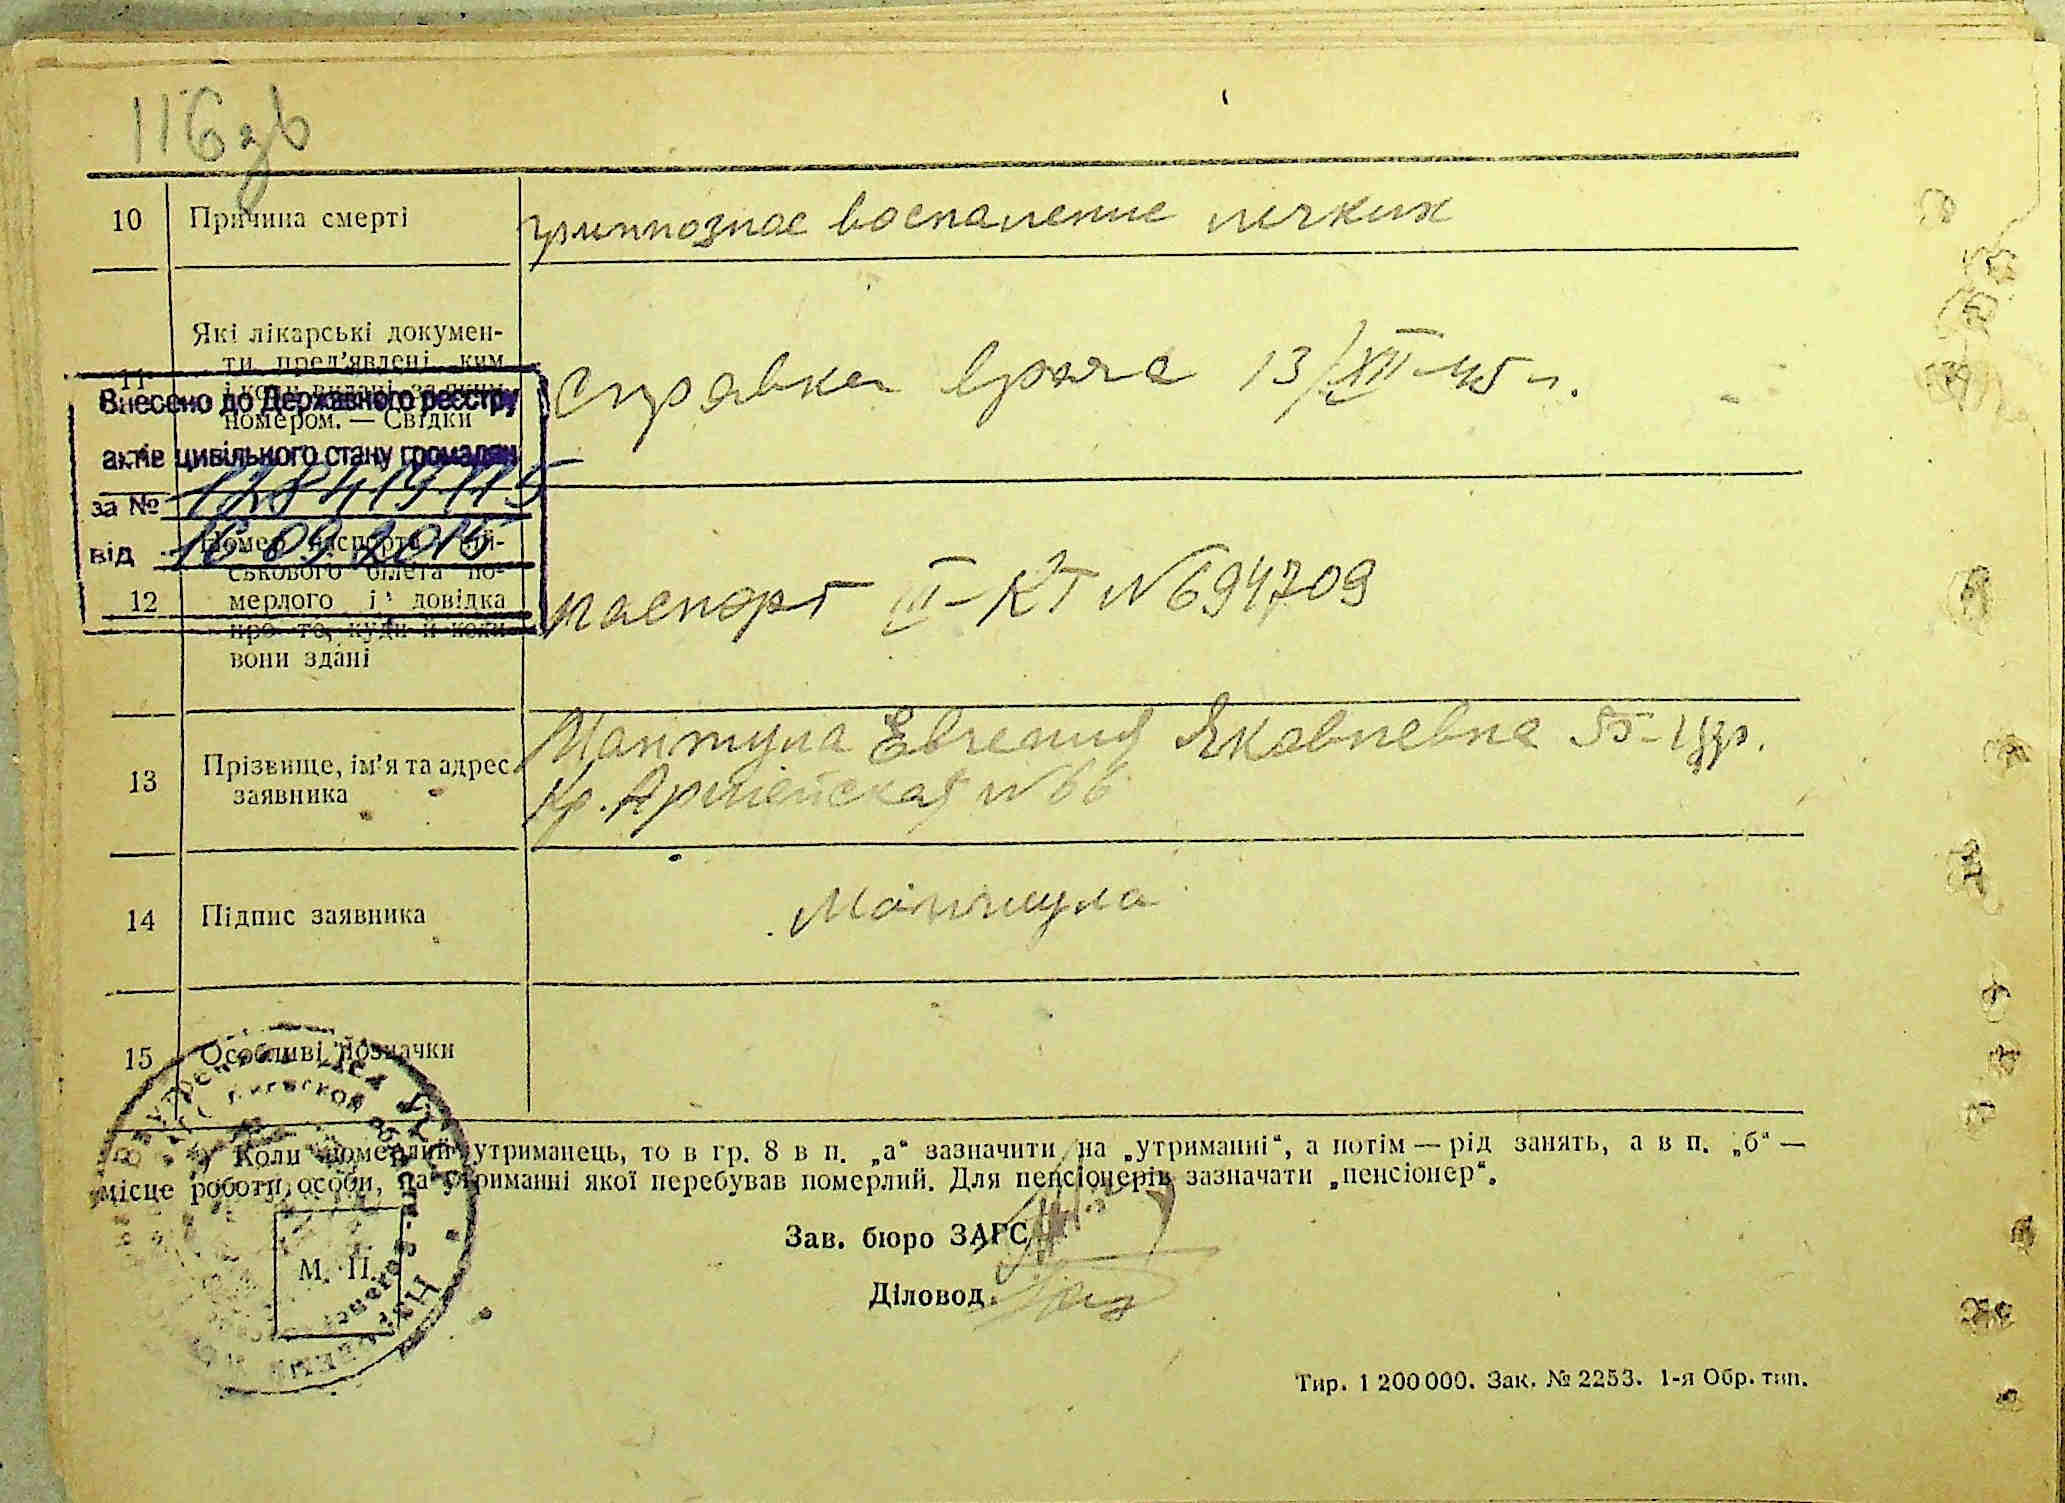 116зв
10 Причина смерті гриппозное воспаление легких
11 Які лікарські докумен-
ти пред'явлені, ким
і коли видані, за яким
номером. — Свідки
справка врача 13/XII-45 г.
Внесено до Державного реєстру
актів цивільного стану громадян
за №
від 16 09 2015
12 Номер паспорта
ськового білета по-
мерлого і довідка
про те, куди й коли
вони здані
паспорт III-КТ №694709
13 Прізвище, ім'я та адрес
заявника
Евгения Яковлевна
Кр. Армейская №66
14 Підпис заявника
15 Особливі позначки
Коли померлий утриманець, то в гр. 8 в п. „а“ зазначити „на утриманні“, а потім — рід занять, а в п. „б“ —
місце роботи особи, на утриманні якої перебував померлий. Для пенсіонерів зазначати „пенсіонер“.
Зав. бюро ЗАГС
М. П.
Діловод
Тир. 1 200 000. Зак. № 2253. 1-я Обр. тип.